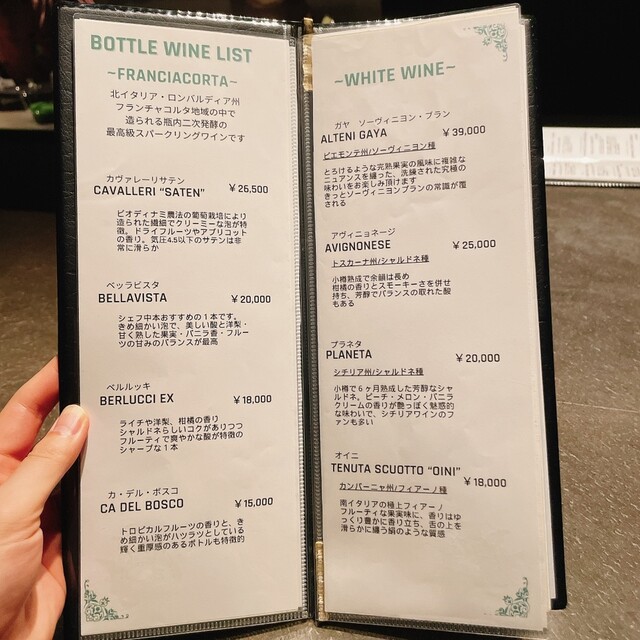 BOTTLE WINE LIST
~FRANCIACORTA~
北イタリア・ロンバルディア州
フランチャコルタ地域の中で
造られる瓶内二次発酵の
最高級スパークリングワインです
カヴァレーリサテン
CAVALLERI “SATEN” ￥26,500
ビオディナミ農法の葡萄栽培により
造られた繊細でクリーミーな泡が特
徴。ドライフルーツやアプリコット
の香り。気圧4.5以下のサテンは非
常に滑らか
ベッラビスタ
BELLAVISTA ￥20,000
シェフ中本おすすめの１本です。
きめ細かい泡で、美しい酸と洋梨・
甘く熟した果実・バニラ香・フルー
ツの甘みのバランスが最高
ベルルッキ
BERLUCCI EX ￥18,000
ライチや洋梨、柑橘の香り
シャルドネらしいコクがありつつ
フルーティで爽やかな酸が特徴の
シャープな１本
カ・デル・ボスコ
CA DEL BOSCO ￥15,000
トロピカルフルーツの香りと、き
め細かい泡がハツラツとしている
輝く重厚感のあるボトルも特徴的
~WHITE WINE~
ガヤ ソーヴィニヨン・ブラン
ALTENI GAYA ￥39,000
ピエモンテ州/ソーヴィニヨン種
とろけるような完熟果実の風味に複雑な
ニュアンスを纏った、洗練された究極の
味わいをお楽しみ頂けます
きっとソーヴィニヨンブランの常識が覆
される
アヴィニョネージ
AVIGNONESE ￥25,000
トスカーナ州/シャルドネ種
小樽熟成で余韻は長め
柑橘の香りとスモーキーさを併せ
持ち、芳醇でバランスの取れた酸
もある
プラネタ
PLANETA ￥20,000
シチリア州/シャルドネ種
小樽で６ヶ月熟成した芳醇なシャ
ルドネ。ピーチ・メロン・バニラ
クリームの香りが艶っぽく魅惑的
な味わいで、シチリアワインのフ
ァンも多い
オイニ
TENUTA SCUOTTO “OINI” ￥18,000
カンパーニャ州/フィアーノ種
南イタリアの極上フィアーノ
フルーティな果実味に、香りはゆ
っくり豊かに香り立ち、舌の上を
滑らかに纏う絹のような質感